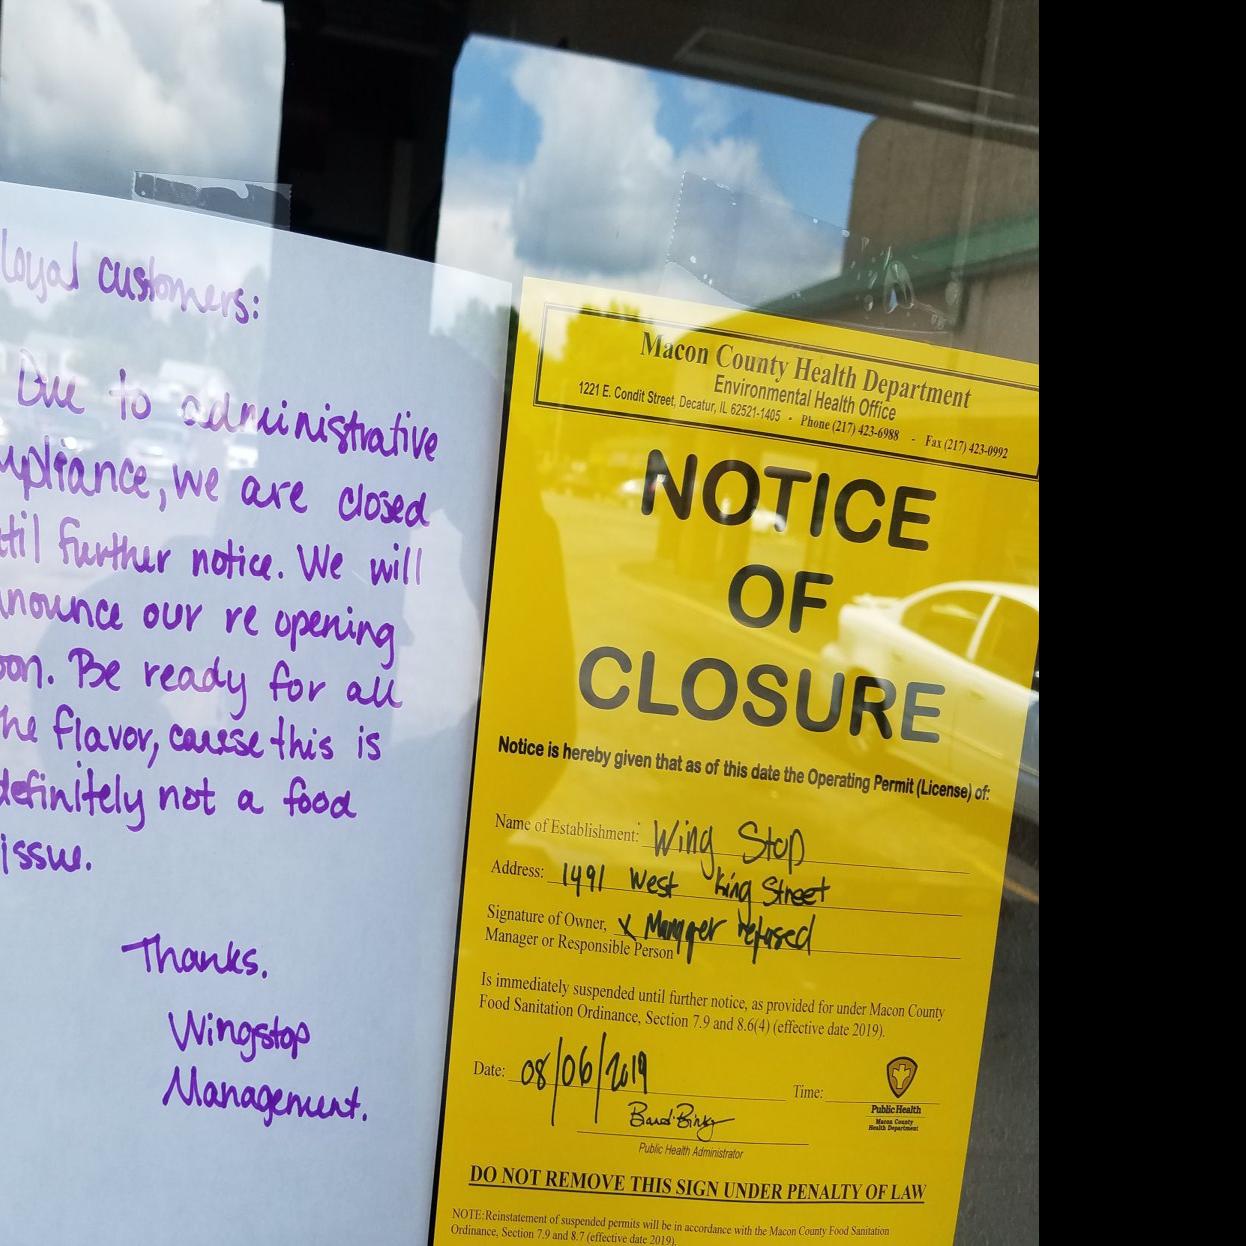 loyal customers:
Due to administrative
mpliance, we are closed
til further notice. We will
nnounce our re opening
oon. Be ready for all
he flavor, cause this is
definitely not a food
issue.
Thanks.
Wingstop
Management.
Macon County Health Department
Environmental Health Office
1221 E. Condit Street, Decatur, IL 62521-1405 - Phone (217) 423-6988 - Fax (217) 423-0992
NOTICE
OF
CLOSURE
Notice is hereby given that as of this date the Operating Permit (License) of:
Name of Establishment: Wing Stop
Address: 1491 West King Street
Signature of Owner, X Manager refused
Manager or Responsible Person
Is immediately suspended until further notice, as provided for under Macon County
Food Sanitation Ordinance, Section 7.9 and 8.6(4) (effective date 2019).
Date: 08/06/2019 Time:
Public Health
Macon County
Health Department
Public Health Administrator
DO NOT REMOVE THIS SIGN UNDER PENALTY OF LAW
NOTE: Reinstatement of suspended permits will be in accordance with the Macon County Food Sanitation
Ordinance, Section 7.9 and 8.7 (effective date 2019).